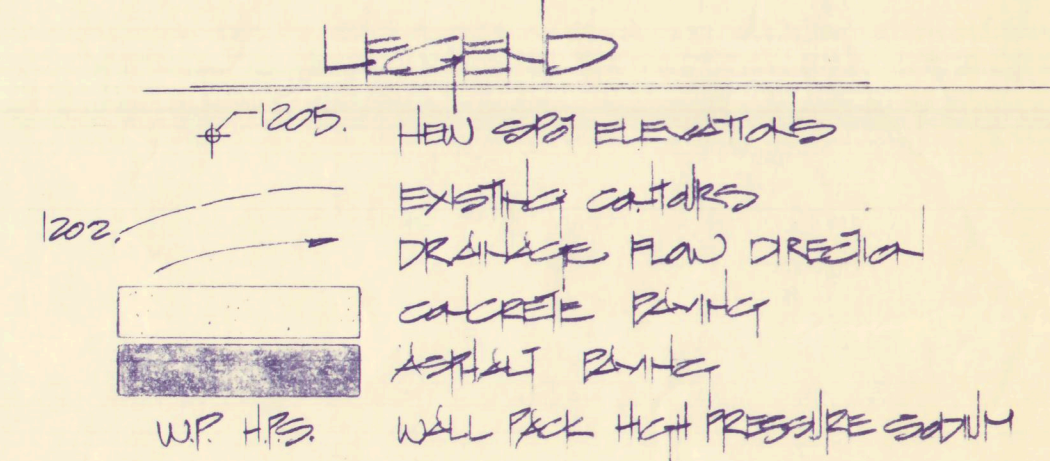 LEGEND
1205. NEW SPOT ELEVATIONS
EXISTING CONTOURS
1202.
DRAINAGE FLOW DIRECTION
CONCRETE PAVING
ASPHALT PAVING
W.P. H.P.S. WALL PACK HIGH PRESSURE SODIUM